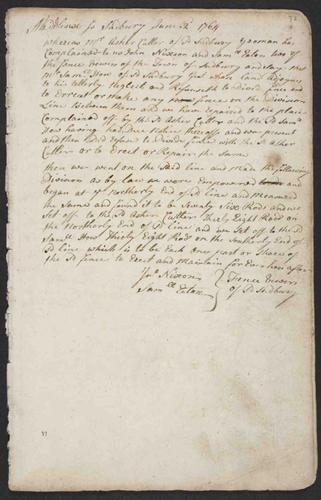 72
Sudbury June 1764
Whereas Mr Asher Cutler of Sd Sudbury yeoman has
Complained to us John Nixson and Samll Eaton two of
the fence viewers of the Town of Sudbury and say that
Mr Samll How of Sd Sudbury that Own Land adjoyning
to his utterly Neglects and Refuseth to Divid fence and
to Errect or make any fence on the Division
Line Between them and we then repaired to the place
Complained off by the Sd Asher Cutler and the Sd Samll
How having had Due Notice thereoff and was present
and then Refused to Divide fence with the Sd Asher
Cutler or to Erect or Repair the Same
then we went on the Said line and Made the following
Division as by law we were Empowered and
began at ye Northerly End of Sd line and Measured
the Same and found it to be Seventy Six Rods and we
Set off to the Sd Asher Cutler Thirty Eight Rods on
the Northerly End of Sd Line and we Set off to the Sd
Samll How Thirty Eight Rods on the Southerly End of
Sd line which is to be Each One part or Share of
the Sd fence to Erect and Maintain for Ever hereafter
Jno Nixson
Samll Eaton
Fence Viewers
of Sd Sudbury